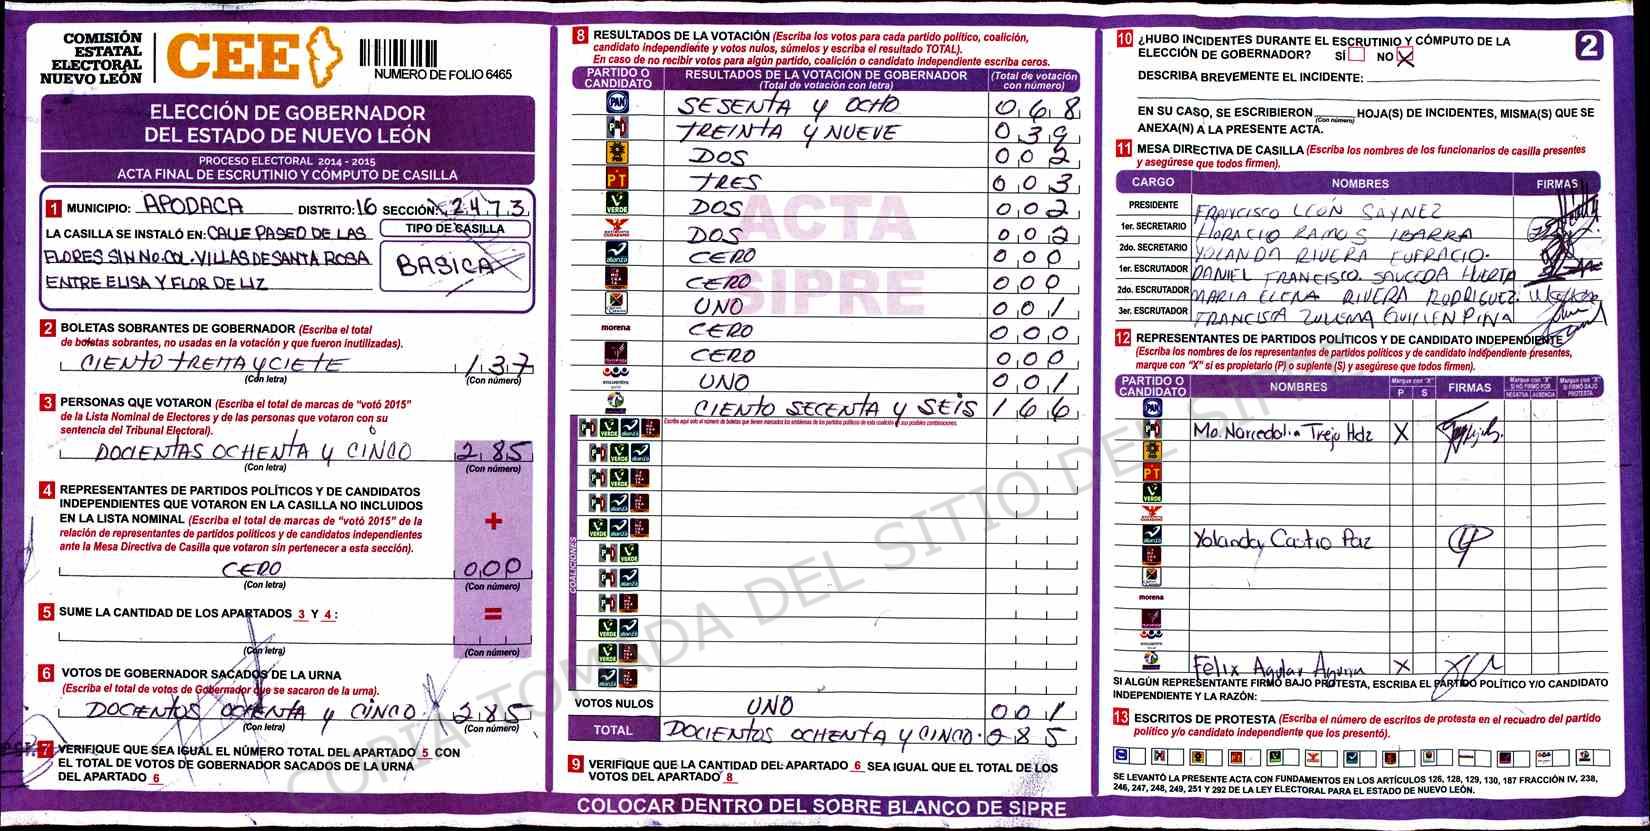 COMISIÓN
ESTATAL
ELECTORAL
NUEVO LEÓN
CEE
NUMERO DE FOLIO 6465
ELECCIÓN DE GOBERNADOR
DEL ESTADO DE NUEVO LEÓN
PROCESO ELECTORAL 2014 - 2015
ACTA FINAL DE ESCRUTINIO Y CÓMPUTO DE CASILLA
1 MUNICIPIO: APODACA DISTRITO: 16 SECCIÓN: 2473
LA CASILLA SE INSTALÓ EN: CALLE PASEO DE LAS
FLORES SIN No. COL. VILLAS DE SANTA ROSA
ENTRE ELISA Y FLOR DE LIZ
TIPO DE CASILLA
BASICA
2 BOLETAS SOBRANTES DE GOBERNADOR (Escriba el total
de boletas sobrantes, no usadas en la votación y que fueron inutilizadas).
CIENTO TREITA Y CIETE 137
(Con letra) (Con número)
3 PERSONAS QUE VOTARON (Escriba el total de marcas de “votó 2015”
de la Lista Nominal de Electores y de las personas que votaron con su
sentencia del Tribunal Electoral).
DOCIENTAS OCHENTA Y CINCO 285
(Con letra) (Con número)
4 REPRESENTANTES DE PARTIDOS POLÍTICOS Y DE CANDIDATOS
INDEPENDIENTES QUE VOTARON EN LA CASILLA NO INCLUIDOS
EN LA LISTA NOMINAL (Escriba el total de marcas de “votó 2015” de la
relación de representantes de partidos políticos y de candidatos independientes
ante la Mesa Directiva de Casilla que votaron sin pertenecer a esta sección).
+
CERO 000
(Con letra) (Con número)
5 SUME LA CANTIDAD DE LOS APARTADOS 3 Y 4:
=
(Con letra) (Con número)
6 VOTOS DE GOBERNADOR SACADOS DE LA URNA
(Escriba el total de votos de Gobernador que se sacaron de la urna).
DOCIENTOS OCHENTA Y CINCO 285
(Con letra) (Con número)
7 VERIFIQUE QUE SEA IGUAL EL NÚMERO TOTAL DEL APARTADO 5 CON
EL TOTAL DE VOTOS DE GOBERNADOR SACADOS DE LA URNA
DEL APARTADO 6
8 RESULTADOS DE LA VOTACIÓN (Escriba los votos para cada partido político, coalición,
candidato independiente y votos nulos, súmelos y escriba el resultado TOTAL).
En caso de no recibir votos para algún partido, coalición o candidato independiente escriba ceros.
PARTIDO O CANDIDATO RESULTADOS DE LA VOTACIÓN DE GOBERNADOR (Total de votación con letra) (Total de votación con número)
PAN SESENTA Y OCHO 068
PRI TREINTA Y NUEVE 039
DOS 002
PT TRES 003
VERDE DOS 002
DOS 002
alianza CERO 000
CERO 000
UNO 001
morena CERO 000
CERO 000
encuentro UNO 001
CIENTO SECENTA Y SEIS 166
Escriba aquí solo el número de boletas que tienen marcados los emblemas de los partidos políticos de esta coalición y sus posibles combinaciones.
COALICIONES
VOTOS NULOS UNO 001
TOTAL DOCIENTOS OCHENTA Y CINCO. 285
9 VERIFIQUE QUE LA CANTIDAD DEL APARTADO 6 SEA IGUAL QUE EL TOTAL DE LOS
VOTOS DEL APARTADO 8
ACTA
SIPRE
COPIA TOMADA DEL SITIO DEL SIPRE
COLOCAR DENTRO DEL SOBRE BLANCO DE SIPRE
2
10 ¿HUBO INCIDENTES DURANTE EL ESCRUTINIO Y CÓMPUTO DE LA
ELECCIÓN DE GOBERNADOR? SÍ NO X
DESCRIBA BREVEMENTE EL INCIDENTE:
EN SU CASO, SE ESCRIBIERON (Con número) HOJA(S) DE INCIDENTES, MISMA(S) QUE SE
ANEXA(N) A LA PRESENTE ACTA.
11 MESA DIRECTIVA DE CASILLA (Escriba los nombres de los funcionarios de casilla presentes
y asegúrese que todos firmen).
CARGO NOMBRES FIRMAS
PRESIDENTE FRANCISCO LEÓN SAYNEZ
1er. SECRETARIO HORACIO RAMOS IBARRA
2do. SECRETARIO YOLANDA RIVERA EUFRACIO.
1er. ESCRUTADOR DANIEL FRANCISCO SAUCEDA HUERTA
2do. ESCRUTADOR MARIA ELENA RIVERA RODRIGUEZ
3er. ESCRUTADOR FRANCISCA ZULEMA GUILLEN PINA
12 REPRESENTANTES DE PARTIDOS POLÍTICOS Y DE CANDIDATO INDEPENDIENTE
(Escriba los nombres de los representantes de partidos políticos y de candidato independiente presentes,
marque con “X” si es propietario (P) o suplente (S) y asegúrese que todos firmen).
PARTIDO O CANDIDATO NOMBRES Marque con “X” P S FIRMAS
PAN
PRI Ma. Narcedalia Trejo Hdz X
PT
VERDE
alianza Yolanda Castro Paz
morena
Felix Aguilar Aguirre X
SI ALGÚN REPRESENTANTE FIRMÓ BAJO PROTESTA, ESCRIBA EL PARTIDO POLÍTICO Y/O CANDIDATO
INDEPENDIENTE Y LA RAZÓN:
13 ESCRITOS DE PROTESTA (Escriba el número de escritos de protesta en el recuadro del partido
político y/o candidato independiente que los presentó).
SE LEVANTÓ LA PRESENTE ACTA CON FUNDAMENTOS EN LOS ARTÍCULOS 126, 128, 129, 130, 187 FRACCIÓN IV, 238,
246, 247, 248, 249, 251 Y 292 DE LA LEY ELECTORAL PARA EL ESTADO DE NUEVO LEÓN.